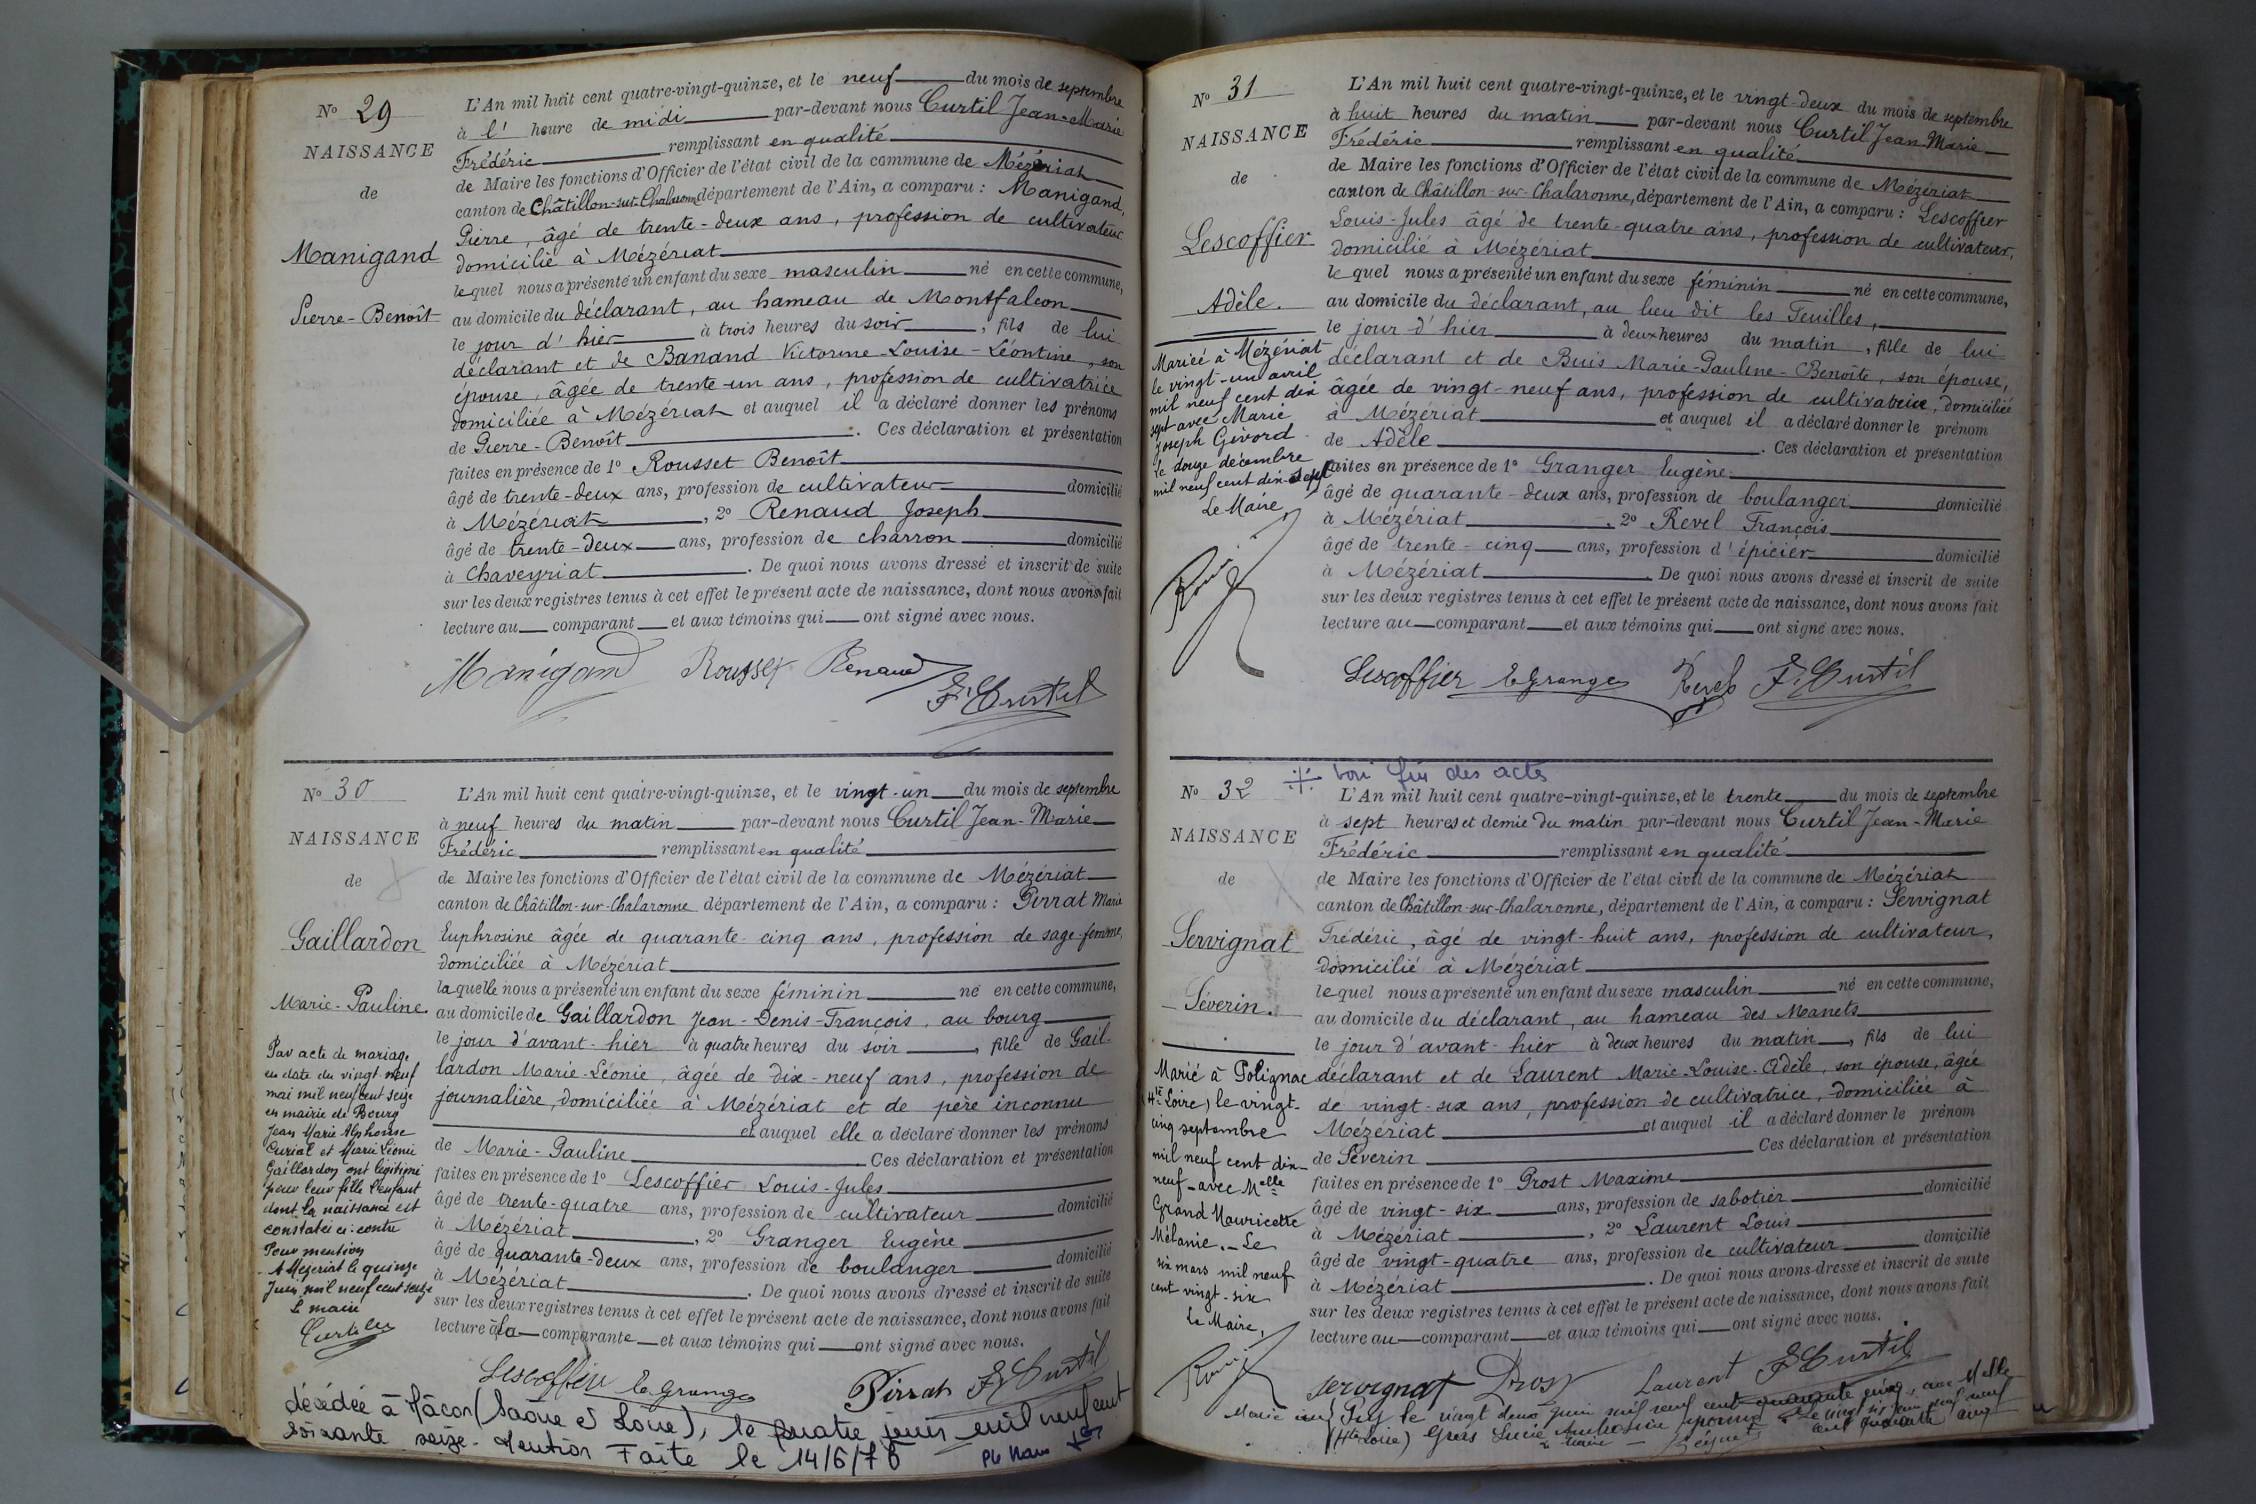 N° 29
NAISSANCE
de
Manigand
Pierre-Benoît
L'An mil huit cent quatre-vingt-quinze, et le neuf du mois de septembre
à l' heure de midi par-devant nous Curtil Jean-Marie
Frédéric remplissant en qualité
de Maire les fonctions d'Officier de l'état civil de la commune de Mézériat
canton de Châtillon-sur-Chalaronne département de l'Ain, a comparu : Manigand,
Pierre, âgé de trente-deux ans, profession de cultivateur
domicilié à Mézériat
lequel nous a présenté un enfant du sexe masculin né en cette commune,
au domicile du déclarant, au hameau de Montfalcon
le jour d'hier à trois heures du soir, fils de lui
déclarant et de Banand Victorine-Louise-Léontine, son
épouse, âgée de trente-un ans, profession de cultivatrice
domiciliée à Mézériat et auquel il a déclaré donner les prénoms
de Pierre-Benoît. Ces déclaration et présentation
faites en présence de 1° Rousset Benoît
âgé de trente-deux ans, profession de cultivateur domicilié
à Mézériat, 2° Renaud Joseph
âgé de trente-deux ans, profession de charron domicilié
à Chaveyriat. De quoi nous avons dressé et inscrit de suite
sur les deux registres tenus à cet effet le présent acte de naissance, dont nous avons fait
lecture au comparant et aux témoins qui ont signé avec nous.
Manigand Rousset Renaud F. Curtil
N° 30
NAISSANCE
de
Gaillardon
Marie-Pauline.
Par acte de mariage
en date du vingt-neuf
mai mil neuf cent seize
en mairie de Bourg
Jean Marie Alphonse
Curial et Marie Léonie
Gaillardon ont légitimé
pour leur fille l'enfant
dont la naissance est
constatée ci-contre
Pour mention
A Mézériat le quinze
Juin mil neuf cent seize
Le maire
L'An mil huit cent quatre-vingt-quinze, et le vingt-un du mois de septembre
à neuf heures du matin par-devant nous Curtil Jean-Marie
Frédéric remplissant en qualité
de Maire les fonctions d'Officier de l'état civil de la commune de Mézériat
canton de Châtillon-sur-Chalaronne département de l'Ain, a comparu : Pirrat Marie
Euphrosine âgée de quarante-cinq ans, profession de sage-femme,
domiciliée à Mézériat
laquelle nous a présenté un enfant du sexe féminin né en cette commune,
au domicile de Gaillardon Jean-Denis-François, au bourg
le jour d'avant-hier à quatre heures du soir, fille de Gail-
lardon Marie-Léonie, âgée de dix-neuf ans, profession de
journalière, domiciliée à Mézériat et de père inconnu
et auquel elle a déclaré donner les prénoms
de Marie-Pauline Ces déclaration et présentation
faites en présence de 1° Lescoffier Louis-Jules
âgé de trente-quatre ans, profession de cultivateur domicilié
à Mézériat, 2° Granger Eugène
âgé de quarante-deux ans, profession de boulanger domicilié
à Mézériat. De quoi nous avons dressé et inscrit de suite
sur les deux registres tenus à cet effet le présent acte de naissance, dont nous avons fait
lecture à la comparante et aux témoins qui ont signé avec nous.
Lescoffier E Granger Pirrat F. Curtil
décédée à Mâcon (Saône et Loire), le quatre juin mil neuf cent
soixante seize. Mention Faite le 14/6/76
N° 31
NAISSANCE
de
Lescoffier
Adèle.
Mariée à Mézériat
le vingt-un avril
mil neuf cent dix
sept avec Marie
Joseph Givord
Le douze décembre
mil neuf cent dix-sept
Le Maire
L'An mil huit cent quatre-vingt-quinze, et le vingt-deux du mois de septembre
à huit heures du matin par-devant nous Curtil Jean Marie
Frédéric remplissant en qualité
de Maire les fonctions d'Officier de l'état civil de la commune de Mézériat
canton de Châtillon-sur-Chalaronne, département de l'Ain, a comparu : Lescoffier
Louis-Jules âgé de trente-quatre ans, profession de cultivateur,
domicilié à Mézériat
lequel nous a présenté un enfant du sexe féminin né en cette commune,
au domicile du déclarant, au lieu dit les Feuilles,
le jour d'hier à deux heures du matin, fille de lui
déclarant et de Buis Marie-Pauline-Benoîte, son épouse,
âgée de vingt-neuf ans, profession de cultivatrice, domiciliée
à Mézériat et auquel il a déclaré donner le prénom
de Adèle. Ces déclaration et présentation
faites en présence de 1° Granger Eugène
âgé de quarante-deux ans, profession de boulanger domicilié
à Mézériat, 2° Revel François
âgé de trente-cinq ans, profession d'épicier domicilié
à Mézériat. De quoi nous avons dressé et inscrit de suite
sur les deux registres tenus à cet effet le présent acte de naissance, dont nous avons fait
lecture au comparant et aux témoins qui ont signé avec nous.
Lescoffier E Granger Revel F. Curtil
N° 32
NAISSANCE
de
Servignat
Séverin.
Marié à Polignac
(Hte Loire) le vingt-
cinq septembre
mil neuf cent dix-
neuf avec Melle
Grand Mauricette
Mélanie. - Le
six mars mil neuf
cent vingt-six
Le Maire,
voir fin des actes
L'An mil huit cent quatre-vingt-quinze, et le trente du mois de septembre
à sept heures et demie du matin par-devant nous Curtil Jean-Marie
Frédéric remplissant en qualité
de Maire les fonctions d'Officier de l'état civil de la commune de Mézériat
canton de Châtillon-sur-Chalaronne, département de l'Ain, a comparu : Servignat
Frédéric, âgé de vingt-huit ans, profession de cultivateur,
domicilié à Mézériat
lequel nous a présenté un enfant du sexe masculin né en cette commune,
au domicile du déclarant, au hameau des Manets
le jour d'avant-hier à deux heures du matin, fils de lui
déclarant et de Laurent Marie-Louise-Adèle, son épouse, âgée
de vingt-six ans, profession de cultivatrice, domiciliée à
Mézériat et auquel il a déclaré donner le prénom
de Séverin Ces déclaration et présentation
faites en présence de 1° Prost Maxime
âgé de vingt-six ans, profession de sabotier domicilié
à Mézériat, 2° Laurent Louis
âgé de vingt-quatre ans, profession de cultivateur domicilié
à Mézériat. De quoi nous avons dressé et inscrit de suite
sur les deux registres tenus à cet effet le présent acte de naissance, dont nous avons fait
lecture au comparant et aux témoins qui ont signé avec nous.
Servignat Prost Laurent F. Curtil
Marié au Puy le vingt deux juin mil neuf cent quarante cinq, avec Melle
(Hte Loire) Gros Lucie